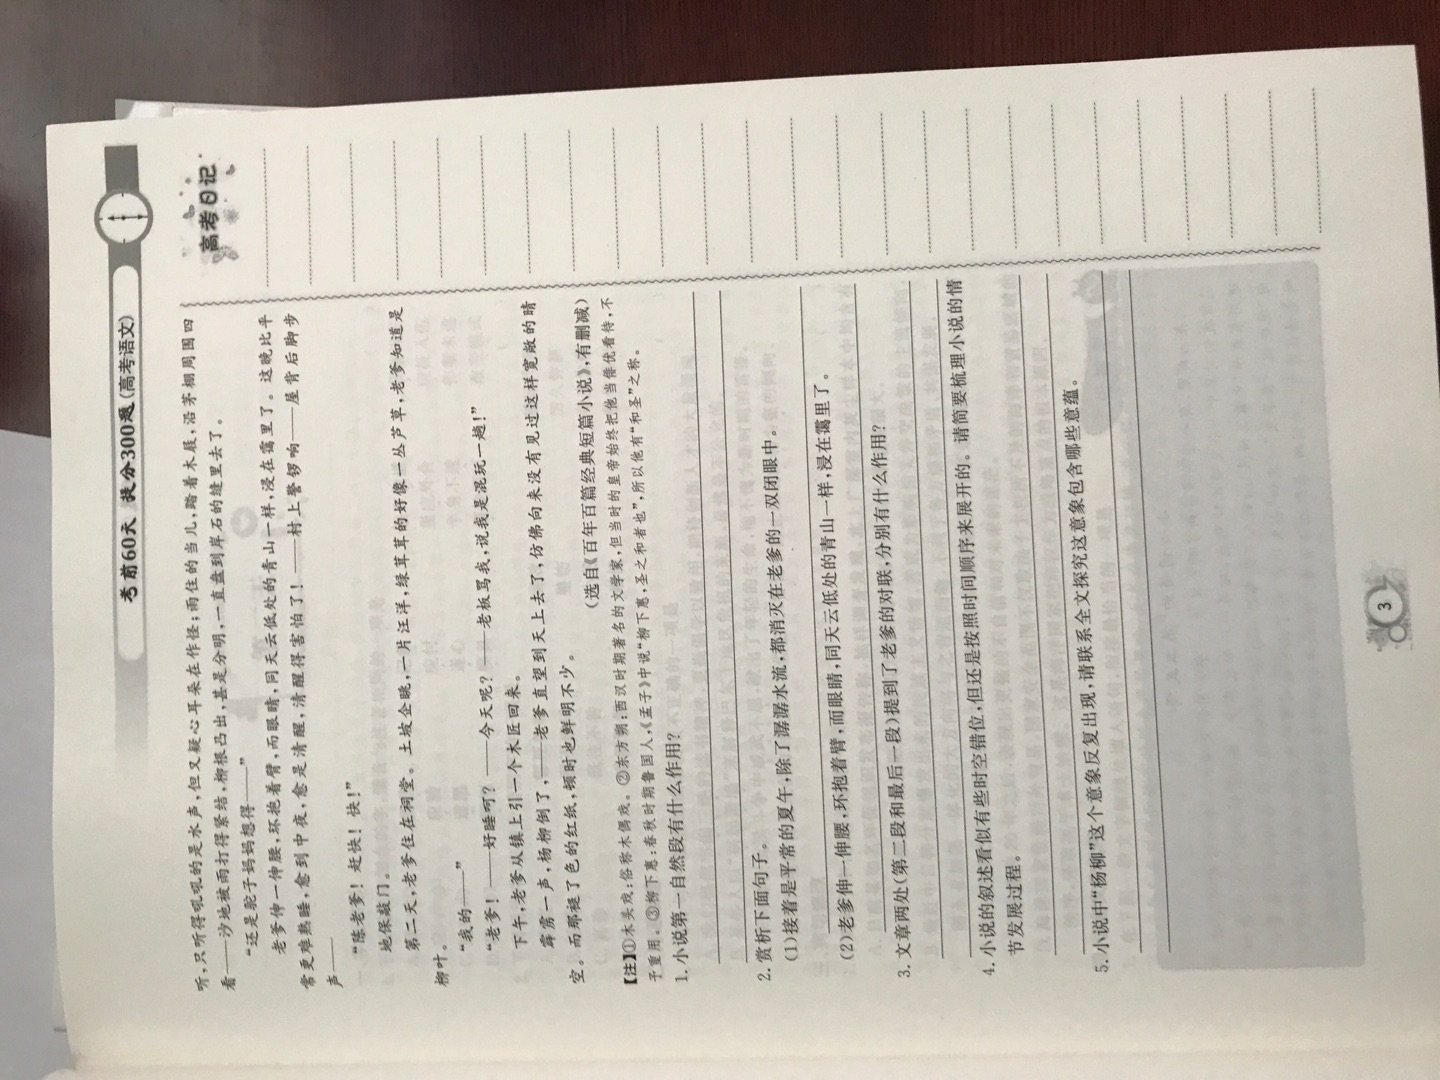 考前60天 提分300题(高考语文)
高考日记
听,只听得吼吼的是水声,但又疑心耳朵在作怪;雨住的当儿,踏着木屐,沿茅棚周围四
看——沙地被雨打得紧结,柳根凸出,甚是分明,一直盘到岸石的缝里去了。
“还是驼子妈妈想得——”
老爹伸一伸腰,环抱着臂,而眼睛,同天云低处的青山一样,浸在霭里了。这晚比平
常更难熟睡,愈到中夜,愈是清醒,清醒得害怕了!——村上警锣响——屋背后脚步
声——
“陈老爹!赶快!快!”
地保敲门。
第二天,老爹住在祠堂。土坡企眺,一片汪洋,绿茸茸的好像一丛芦草,老爹知道是
柳叶。
“我的——”
“老爹!——好睡呵?——今天呢?——老板骂我,说我是混玩一趟!”
下午,老爹从镇上引一个木匠回来。
霹雳一声,杨柳倒了,——老爹直望到天上去了,仿佛向来没有见过这样宽敞的晴
空。而那褪了色的红纸,顿时也鲜明不少。
(选自《百年百篇经典短篇小说》,有删减)
【注】①木头戏:俗称木偶戏。②东方朔:西汉时期著名的文学家,但当时的皇帝始终把他当俳优看待,不
予重用。③柳下惠:春秋时期鲁国人,《孟子》中说“柳下惠,圣之和者也”,所以他有“和圣”之称。
1.小说第一自然段有什么作用?
2.赏析下面句子。
(1)接着是平常的夏午,除了潺潺水流,都消灭在老爹的一双闭眼中。
(2)老爹伸一伸腰,环抱着臂,而眼睛,同天云低处的青山一样,浸在霭里了。
3.文章两处(第二段和最后一段)提到了老爹的对联,分别有什么作用?
4.小说的叙述看似有些时空错位,但还是按照时间顺序来展开的。请简要梳理小说的情
节发展过程。
5.小说中“杨柳”这个意象反复出现,请联系全文探究这意象包含哪些意蕴。
3